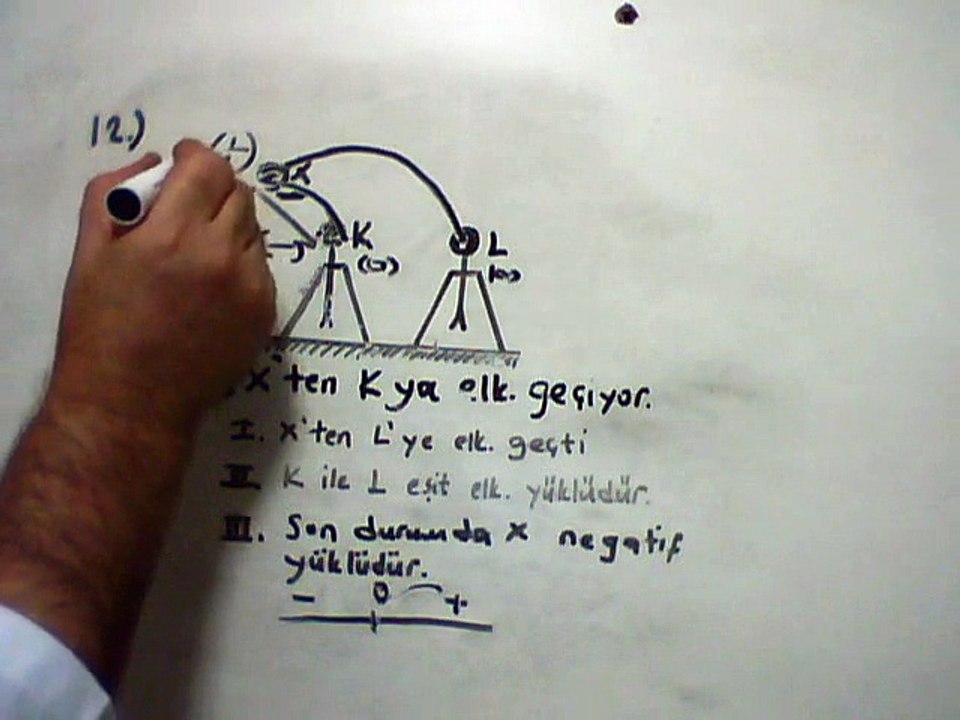 12.)
X
K
L
(0)
X'ten K ya elk. geçiyor.
I. X'ten L'ye elk. geçti
II. K ile L eşit elk. yüklüdür.
III. Son durumda X negatif
yüklüdür.
- 0 +